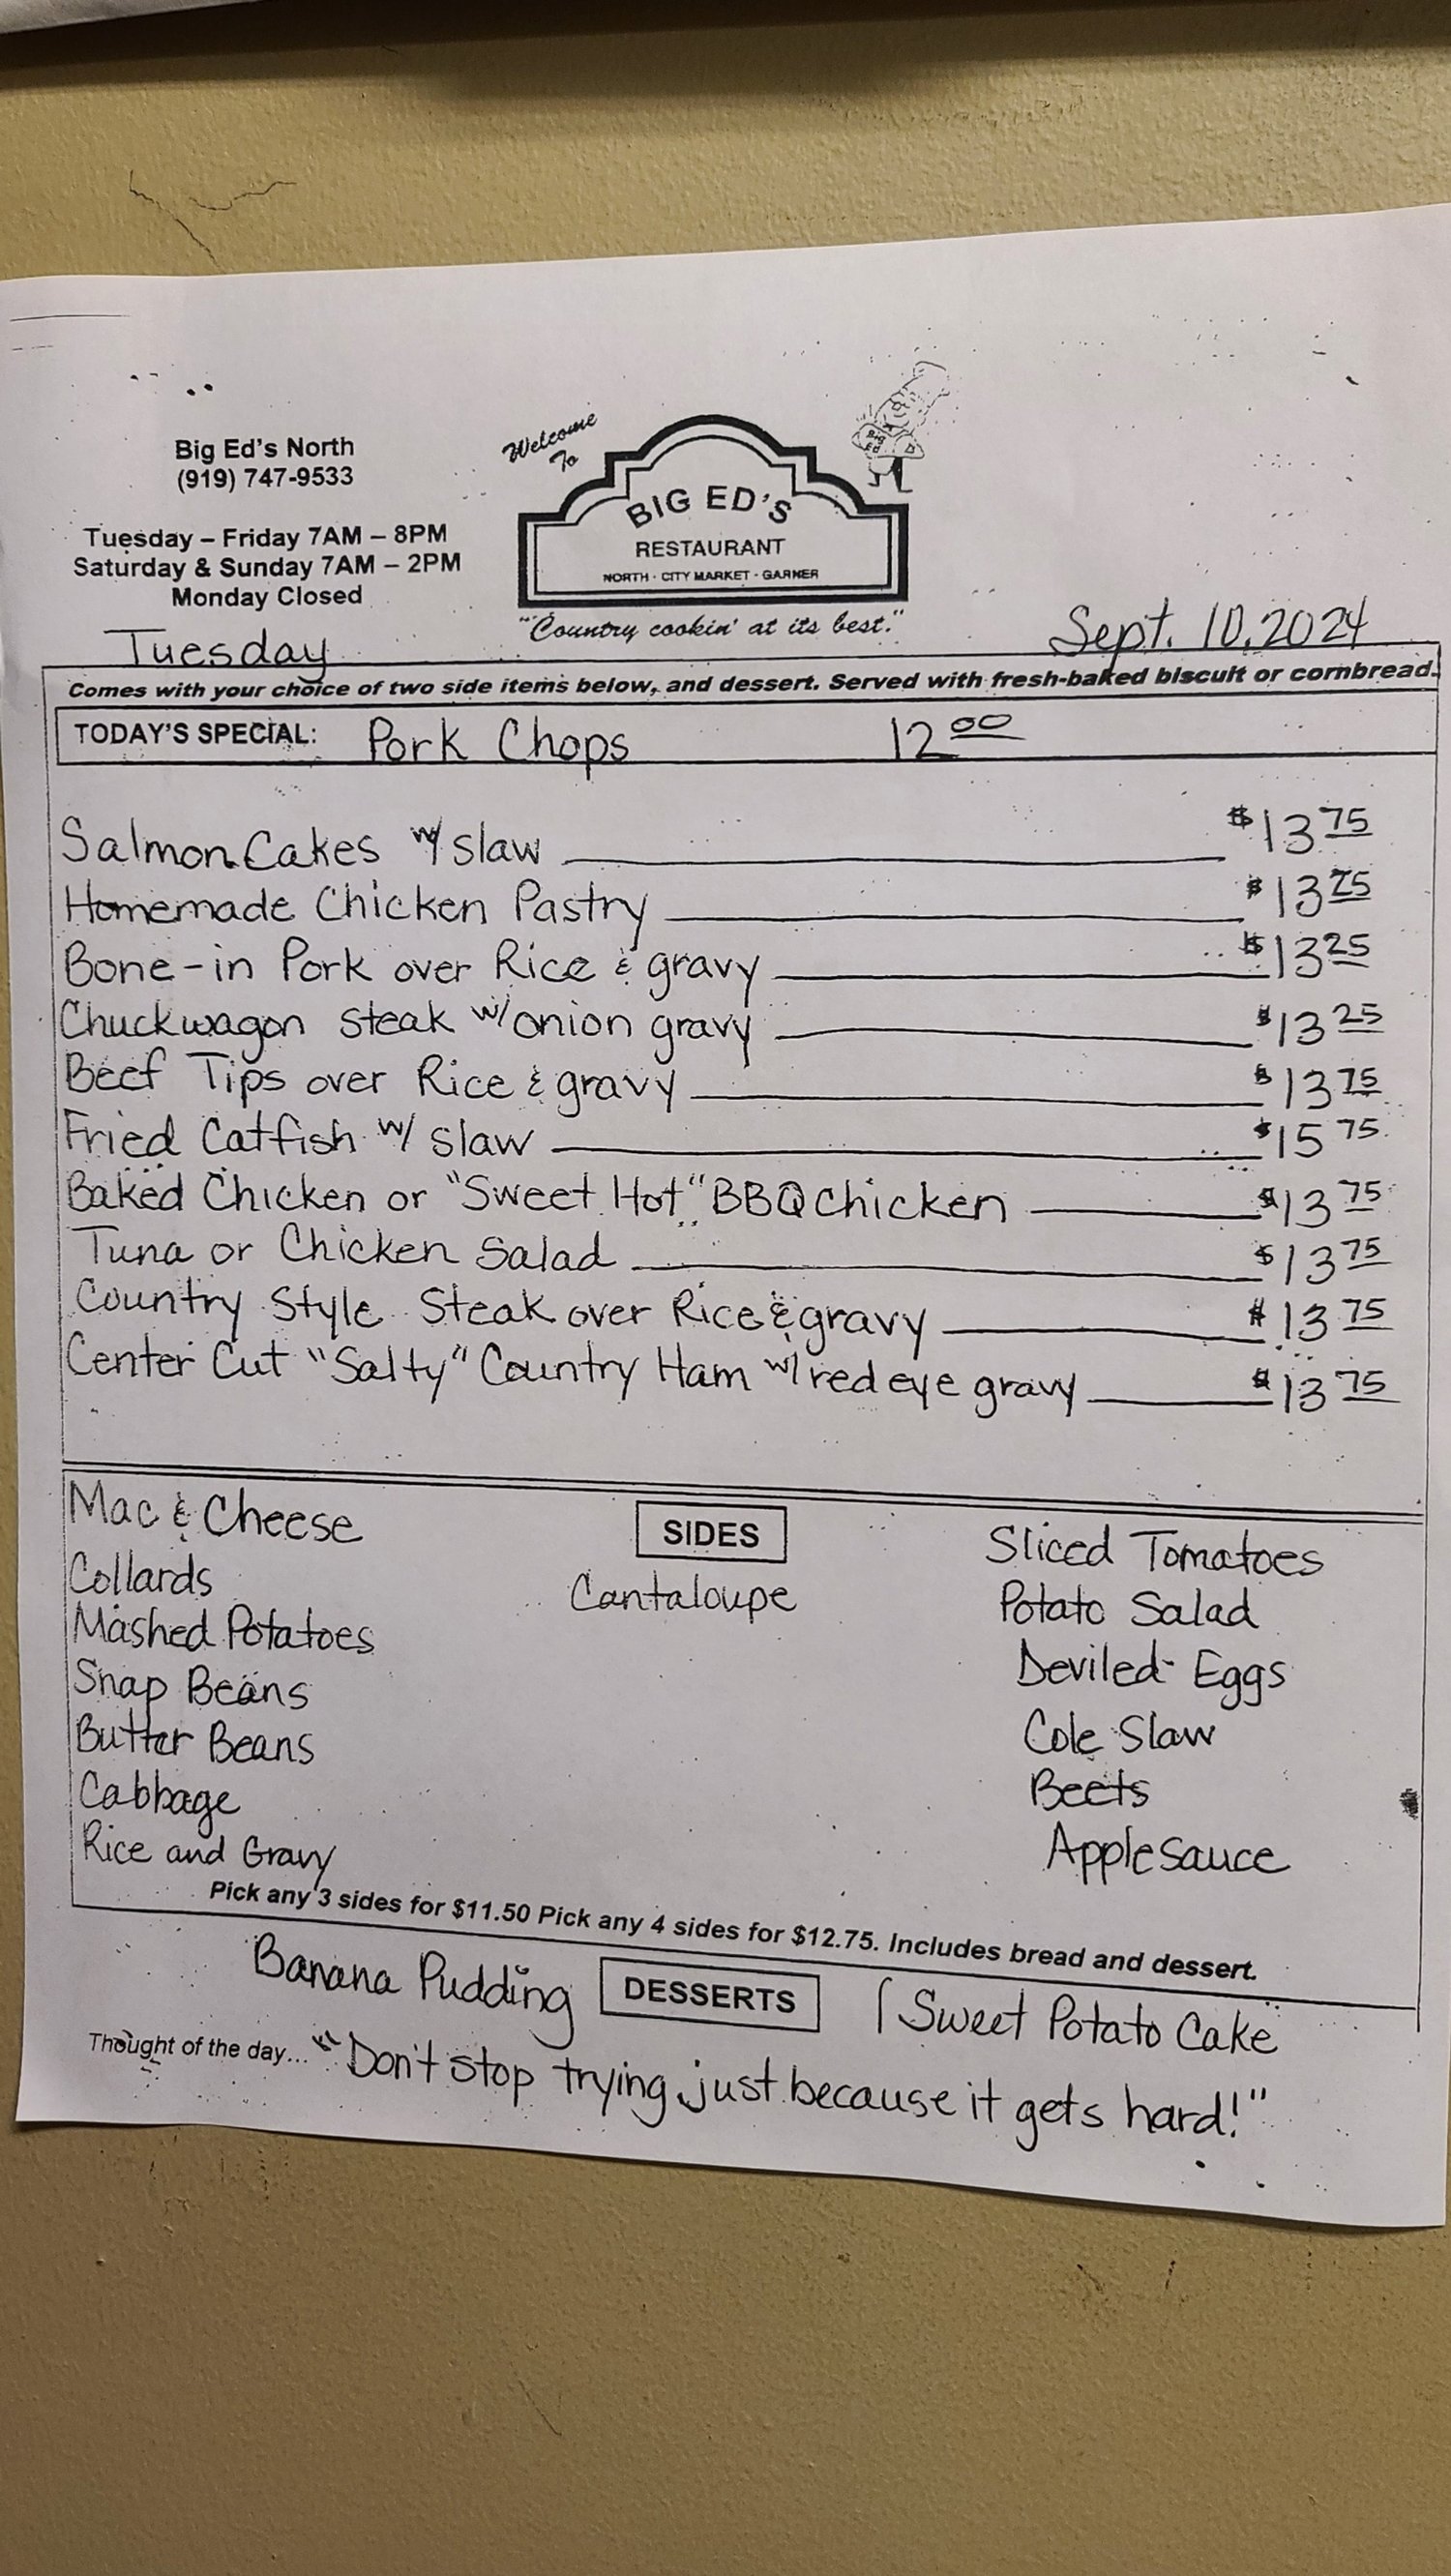 Big Ed's North
(919) 747-9533
Tuesday – Friday 7AM – 8PM
Saturday & Sunday 7AM – 2PM
Monday Closed
Welcome
To
BIG ED'S
RESTAURANT
NORTH · CITY MARKET · GARNER
"Country cookin' at its best."
BIG
ED
Tuesday
Sept. 10, 2024
Comes with your choice of two side items below, and dessert. Served with fresh-baked biscuit or cornbread.
TODAY'S SPECIAL: Pork Chops 12.00
Salmon Cakes w/ slaw $13 75
Homemade Chicken Pastry $13
Bone-in Pork over Rice & gravy $13 25
Chuckwagon steak w/ onion gravy $13 25
Beef Tips over Rice & gravy $13 75
Fried Catfish w/ slaw $15 75
Baked Chicken or "Sweet Hot" BBQ Chicken $13 75
Tuna or Chicken Salad $13 75
Country Style Steak over Rice & gravy $13 75
Center Cut "Salty" Country Ham w/ red eye gravy $13 75
SIDES
Mac & Cheese
Collards
Mashed Potatoes
Snap Beans
Butter Beans
Cabbage
Rice and Gravy
Cantaloupe
Sliced Tomatoes
Potato Salad
Deviled Eggs
Cole Slaw
Beets
Applesauce
Pick any 3 sides for $11.50 Pick any 4 sides for $12.75. Includes bread and dessert.
DESSERTS
Banana Pudding
Sweet Potato Cake
Thought of the day... "Don't stop trying just because it gets hard!"